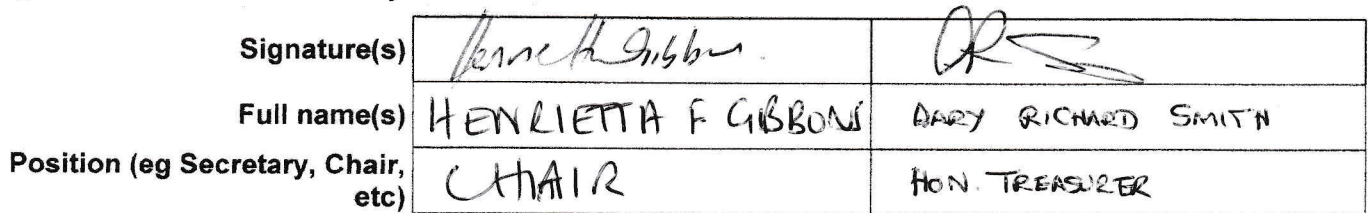 Signature(s)
Full name(s) HENRIETTA F GIBBONS RICHARD SMITH
Position (eg Secretary, Chair, etc) CHAIR HON. TREASURER